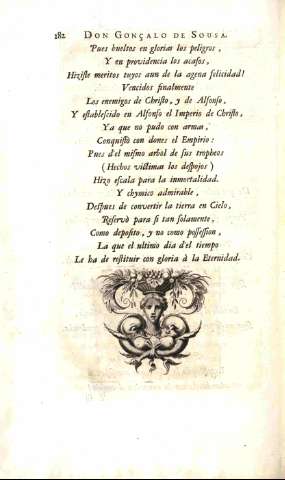 282 DON GONÇALO DE SOUSA.
Pues bueltos en glorias los peligros,
Y en providencia los acasos,
Hiziste meritos tuyos aun de la agena felicidad!
Vencidos finalmente
Los enemigos de Christo, y de Alfonso,
Y establescido en Alfonso el Imperio de Christo,
Ya que no pudo con armas,
Conquistò con dones el Empirio:
Pues d'el mismo arbol de sus tropheos
(Hechos victimas los despojos)
Hizo escala para la inmortalidad.
Y chymico admirable,
Despues de convertir la tierra en Cielo,
Reservò para si tan solamente,
Como deposito, y no como possession,
La que el ultimo dia d'el tiempo
Le ha de restituir con gloria à la Eternidad.